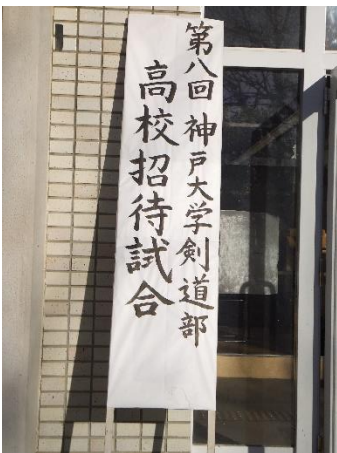 第八回 神戸大学剣道部
高校招待試合